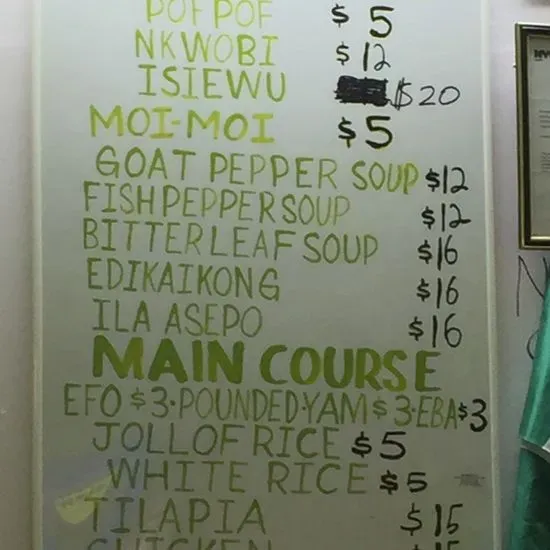 POF POF $5
NKWOBI $12
ISIEWU $20
MOI-MOI $5
GOAT PEPPER SOUP $12
FISH PEPPER SOUP $12
BITTER LEAF SOUP $16
EDIKAIKONG $16
ILA ASEPO $16
MAIN COURSE
EFO $3·POUNDED·YAM $3·EBA $3
JOLLOF RICE $5
WHITE RICE $5
TILAPIA $15
CHICKEN $15